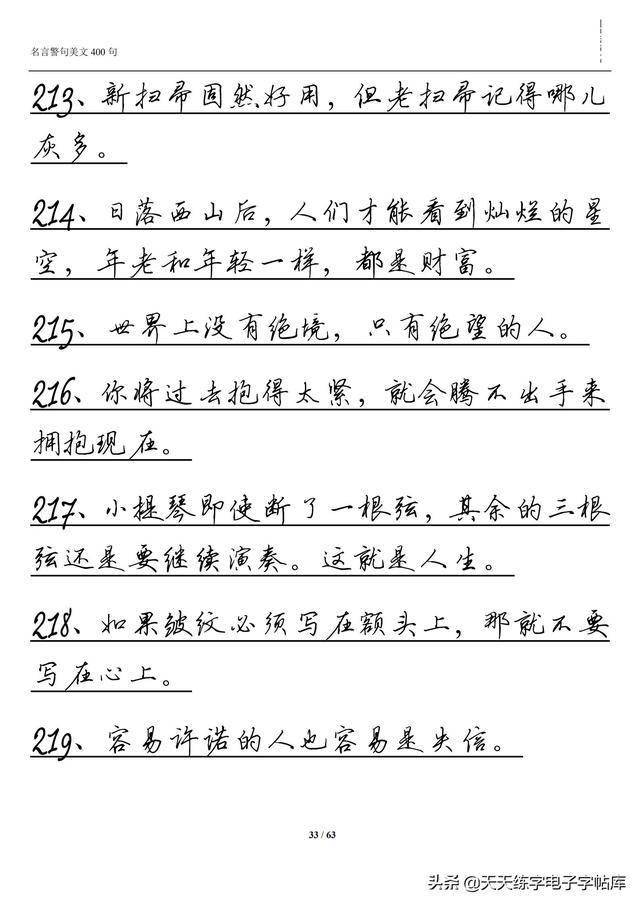 名言警句美文 400 句
213、新扫帚固然好用，但老扫帚记得哪儿
灰多。
214、日落西山后，人们才能看到灿烂的星
空，年老和年轻一样，都是财富。
215、世界上没有绝境，只有绝望的人。
216、你将过去抱得太紧，就会腾不出手来
拥抱现在。
217、小提琴即使断了一根弦，其余的三根
弦还是要继续演奏。这就是人生。
218、如果皱纹必须写在额头上，那就不要
写在心上。
219、容易许诺的人也容易是失信。
33 / 63
头条 @天天练字电子字帖库